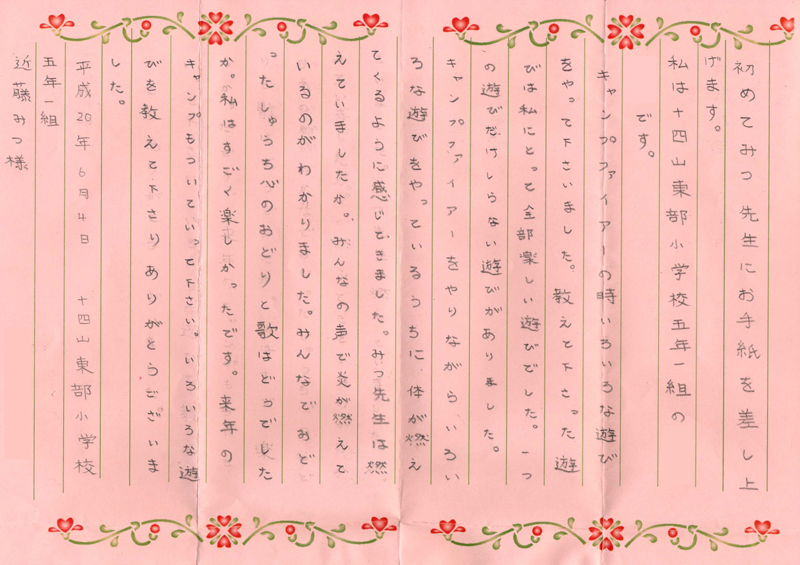 初めてみつ先生にお手紙を差し上
げます。
私は十四山東部小学校五年一組の
です。
キャンプファイアーの時いろいろな遊び
をやって下さいました。教えて下さった遊
びは私にとって全部楽しい遊びでした。一つ
の遊びだけしらない遊びがありました。
キャンプファイアーをやりながらいろい
ろな遊びをやっているうちに体が燃え
てくるように感じてきました。みつ先生は燃
えていましたか。みんなの声で炎が燃えて
いるのがわかりました。みんなでおど
ったしゅうち心のおどりと歌はどうでした
か。私はすごく楽しかったです。来年の
キャンプもついていって下さい。いろいろな遊
びを教えて下さりありがとうございま
した。
平成20年6月4日 十四山東部小学校
五年一組
近藤みつ様